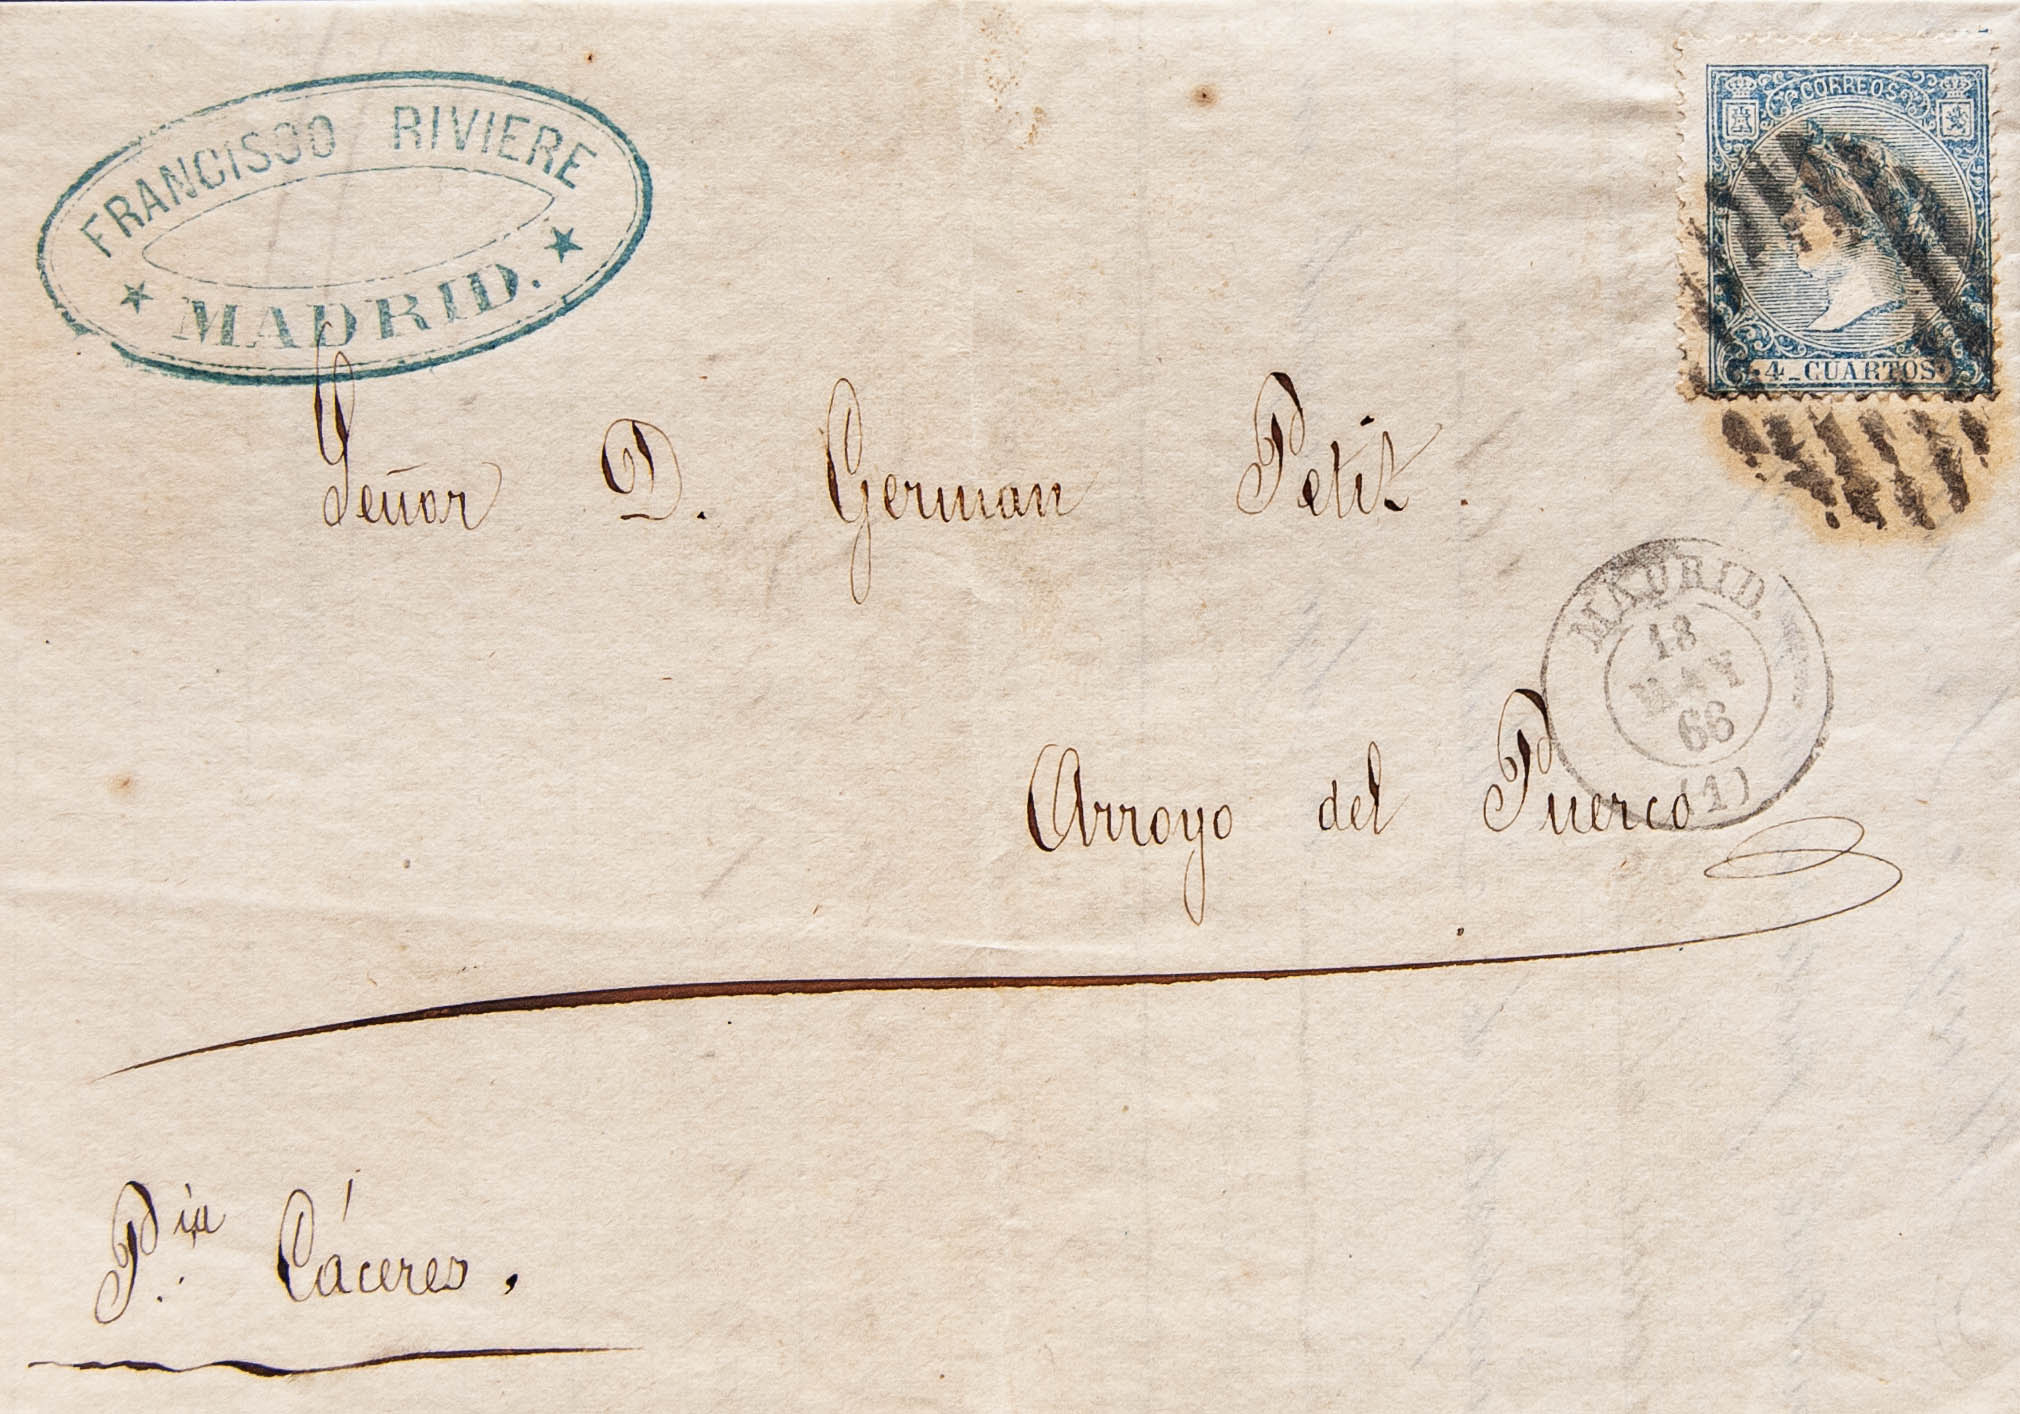 FRANCISCO RIVIERE
★ MADRID. ★
CORREOS
4 - CUARTOS
Señor D. German Petit.
MADRID.
18
MAY
66
(1)
Arroyo del Puerco
P.ia Cáceres.